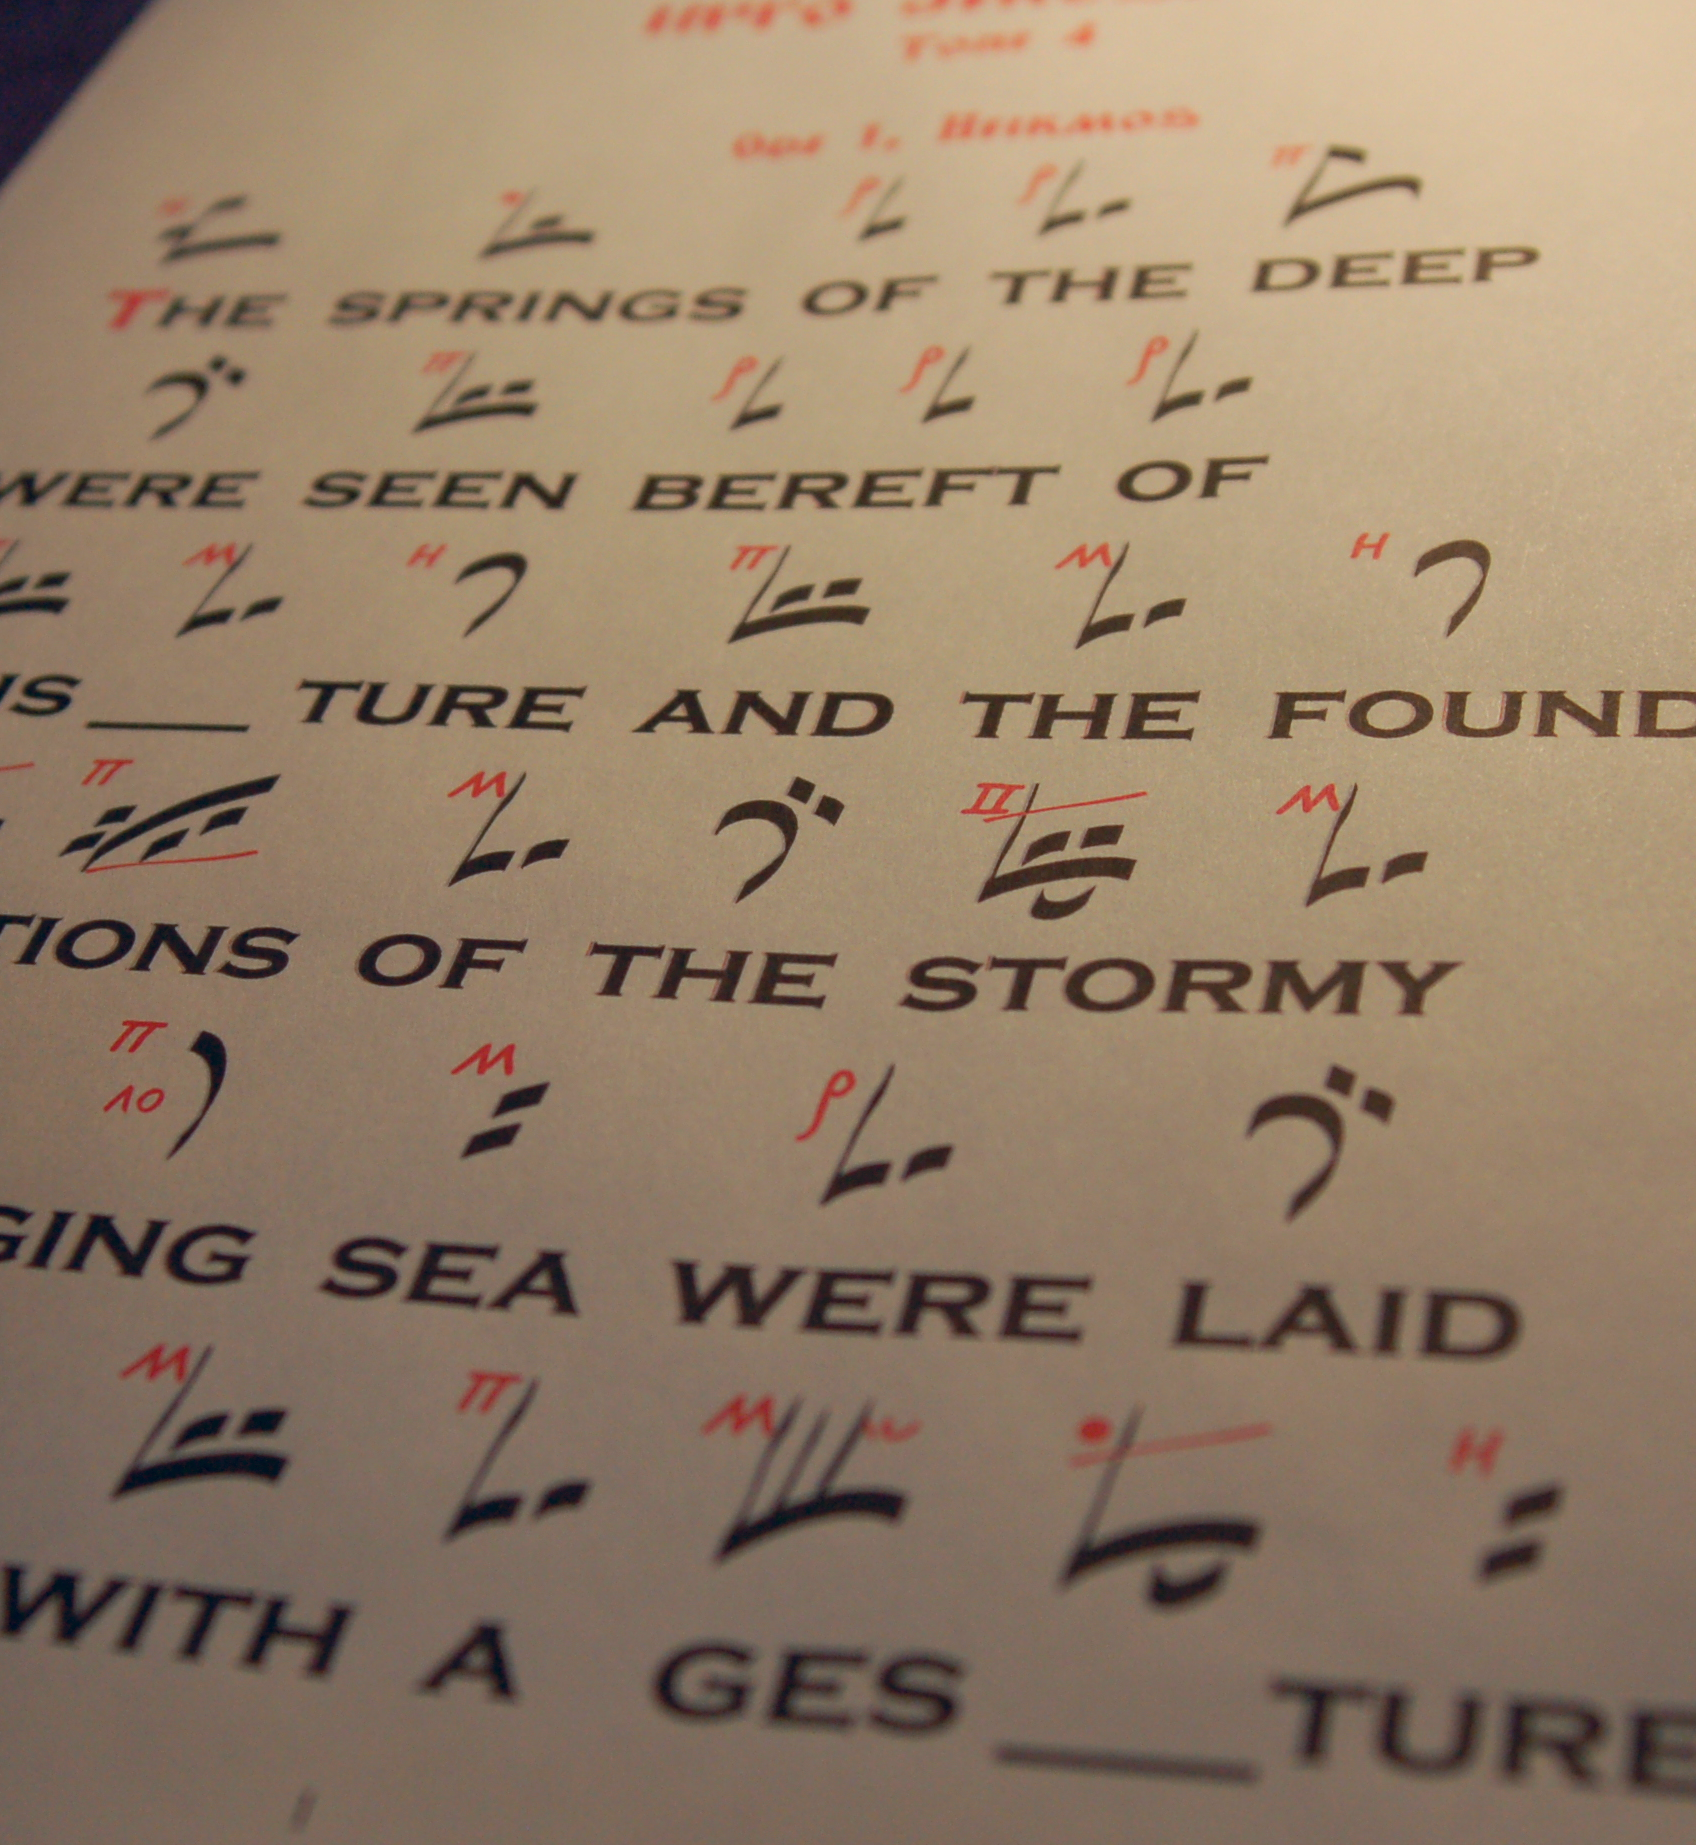 Tone 4
Ode I. Heirmos
THE SPRINGS OF THE DEEP
WERE SEEN BEREFT OF
IS___ TURE AND THE FOUND
TIONS OF THE STORMY
GING SEA WERE LAID
WITH A GES___TURE